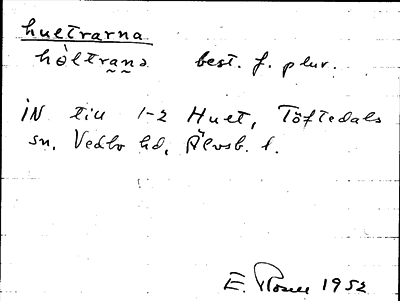 hultrarna
hòltrana best. f. plur.
IN till 1-2 Hult, Töftedals
sn, Vedbo hd, Älvsb. l.
E. Rosell 1952